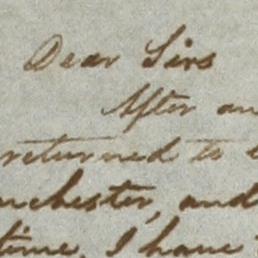 Dear Sirs
After an
returned to
nchester, and
time, I have